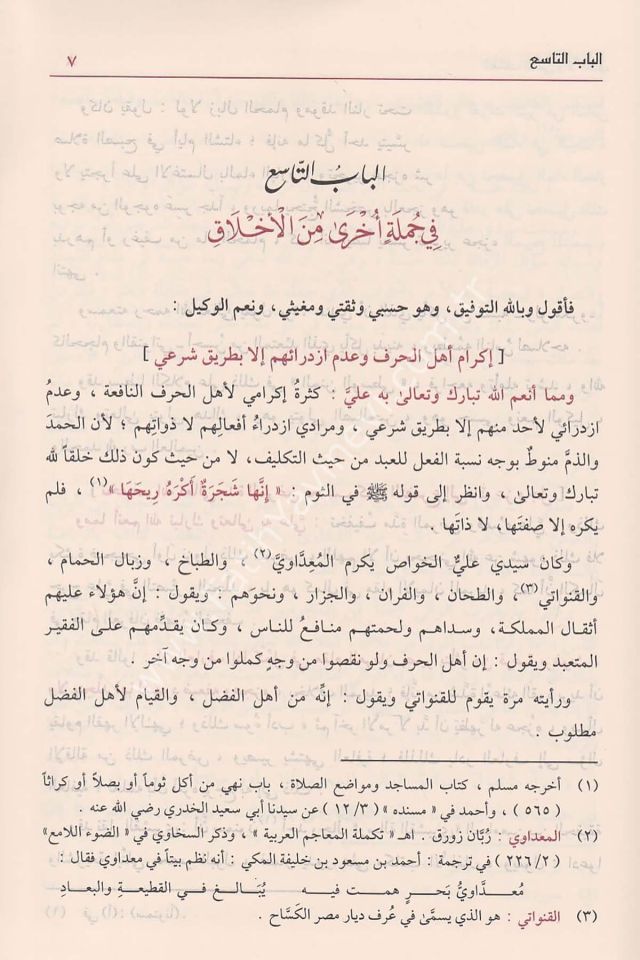 الباب التاسع ٧
الباب التاسع
في جُملَةٍ أُخْرىٰ مِنَ الْأَخْلَاقِ
فأقول وبالله التوفيق ، وهو حسبي وثقتي ومغيثي ، ونعم الوكيل :
[ إكرام أهل الحرف وعدم ازدرائهم إلا بطريق شرعي ]
ومما أنعم الله تبارك وتعالىٰ به عليَّ : كثرةُ إكرامي لأهل الحرف النافعة ، وعدمُ
ازدرائي لأحد منهم إلا بطريق شرعي ، ومرادي ازدراءُ أفعالِهم لا ذواتِهم ؛ لأن الحمدَ
والذمَّ منوطٌ بوجه نسبة الفعل للعبد من حيث التكليف، لا من حيث كون ذلك خلقاً لله
تبارك وتعالىٰ ، وانظر إلى قوله ﷺ في الثوم : « إِنَّهَا شَجَرَةٌ أَكْرَهُ رِيحَهَا »(١) ، فلم
يكره إلا صفتَها، لا ذاتَها .
وكان سيدي عليٌّ الخواص يكرم المُعَدَّاويَّ(٢) ، والطباخ ، وزبال الحمام ،
والقنواتي(٣)، والطحان ، والفران ، والجزار ، ونحوَهم : ويقول : إنَّ هؤلاء عليهم
أثقال المملكة، وسداهم ولحمتهم منافعُ للناس ، وكان يقدِّمهم علـى الفقيـر
المتعبد ويقول : إن أهل الحرف ولو نقصوا من وجهٍ كملوا من وجه آخر .
ورأيته مرة يقوم للقنواتي ويقول : إنَّه من أهل الفضل ، والقيام لأهل الفضل
مطلوب .
(١) أخرجه مسلم ، كتاب المساجد ومواضع الصلاة ، باب نهي من أكل ثوماً أو بصلاً أو كراثاً
( ٥٦٥ ) ، وأحمد في « مسنده » ( ١٢/٣ ) عن سيدنا أبي سعيد الخدري رضي الله عنه .
(٢) المعداوي : رُبَّان زورق . اهـ « تكملة المعاجم العربية » ، وذكر السخاوي في « الضوء اللامع»
( ٢٢٦/٢ ) في ترجمة : أحمد بن مسعود بن خليفة المكي : أنه نظم بيتاً في معداوي فقال :
مُعـدَّاويُّ بَحـرٍ همـت فيـه يُبَـالـغ فـي القطيعـةِ والبعـادِ
(٣) القنواتي : هو الذي يسمَّىٰ في عُرف ديار مصر الكَسَّاح .